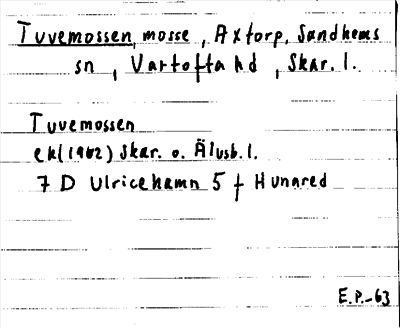 Tuvemossen, mosse, Axtorp, Sandhems
sn, Vartofta hd, Skar. l.
Tuvemossen
ek(1962) Skar. o. Älvsb. l.
7 D Ulricehamn 5 f Hunnred
E.P.-63